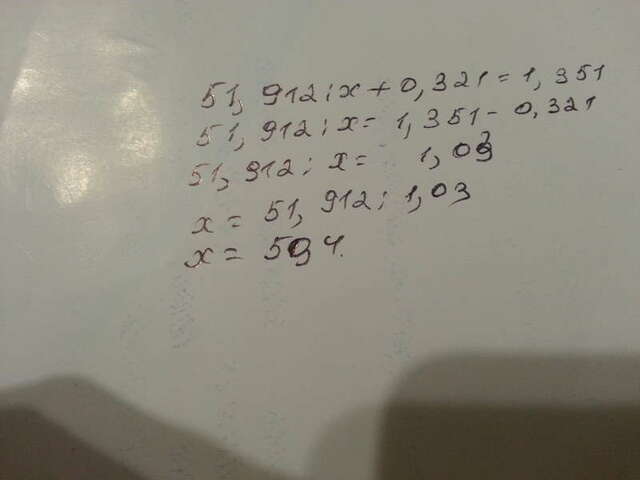 51, 912 : x + 0, 321 = 1, 351
51, 912 : x = 1, 351 - 0, 321
51, 912 : x = 1, 03
x = 51, 912 : 1, 03
x = 504.